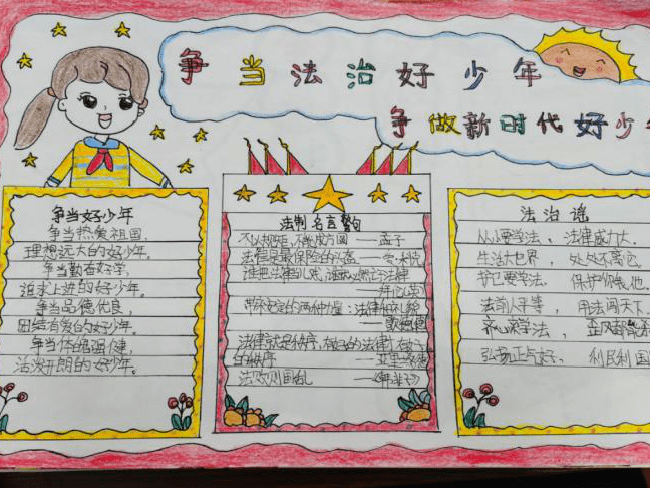 争当法治好少年
争做新时代好少年
争当好少年
争当热爱祖国、
理想远大的好少年。
争当勤奋好学,
追求上进的好少年。
争当品德优良,
团结有爱的好少年。
争当体魄强健,
活泼开朗的好少年。
法制名言警句
不以规矩,不能成方圆——孟子
法律是最保险的头盔——爱·科克
谁把法律当儿戏,谁就必然亡于法律
——拜伦(英)
带来安定的两种力量:法律和礼貌
——歌德(德)
法律就是秩序,有好的法律才有好
的秩序——亚里
法败则国乱——《韩非子》
法治谣
从小要学法、法律威力大。
生活大世界,处处不离它。
护它要学法、保护你我他。
法前人平等,用法闯天下。
齐心来学法、歪风
弘扬正与好、利民利国